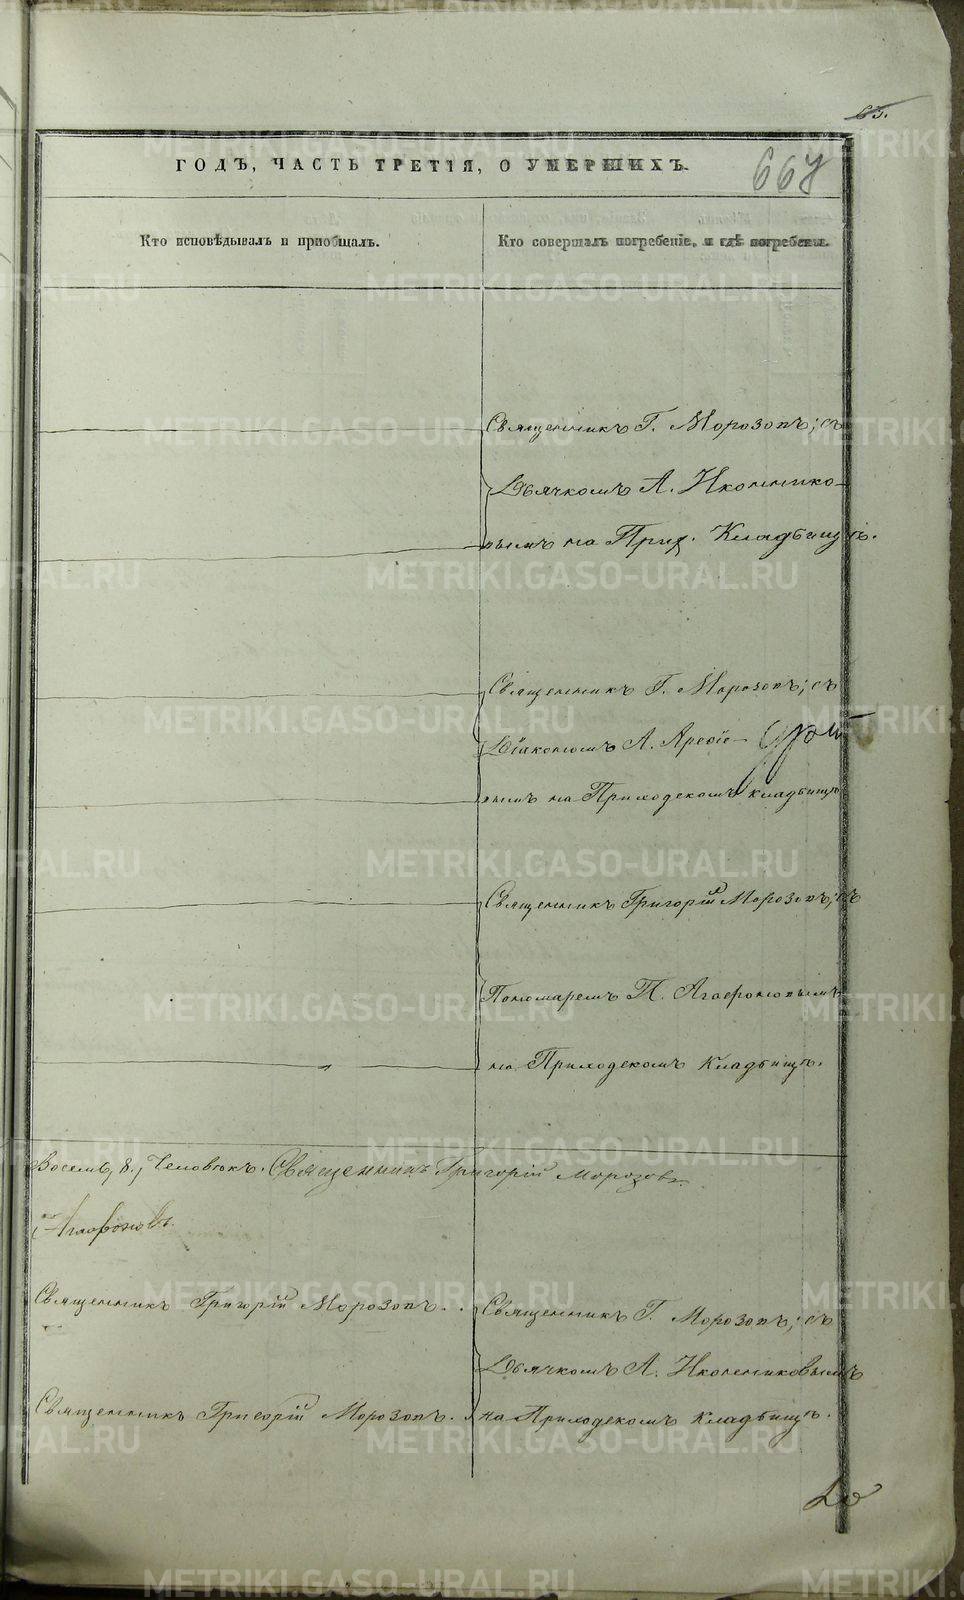 65.
ГОДЪ, ЧАСТЬ ТРЕТІЯ, О УМЕРШИХЪ.
667
Кто исповѣдывалъ и приобщалъ.
Кто совершалъ погребеніе, и гдѣ погребены.
Священникъ Г. Морозовъ; съ
Дьячкомъ А. Иконнико-
вымъ на Прих. Кладбищѣ.
Священникъ Г. Морозовъ; съ
Діакономъ А. Арефіе-
вымъ на Приходскомъ кладбищѣ
Священникъ Григорій Морозовъ; съ
Пономаремъ П. Агафоновымъ
на Приходскомъ Кладбищѣ.
Восемь, 8, Человѣкъ. Священникъ Григорій Морозовъ.
Агафоновъ.
Священникъ Григорій Морозовъ.
Священникъ Г. Морозовъ; съ
Дьячкомъ А. Иконниковымъ
Священникъ Григорій Морозовъ.
на Приходскомъ Кладбищѣ.
METRIKI.GASO-URAL.RU